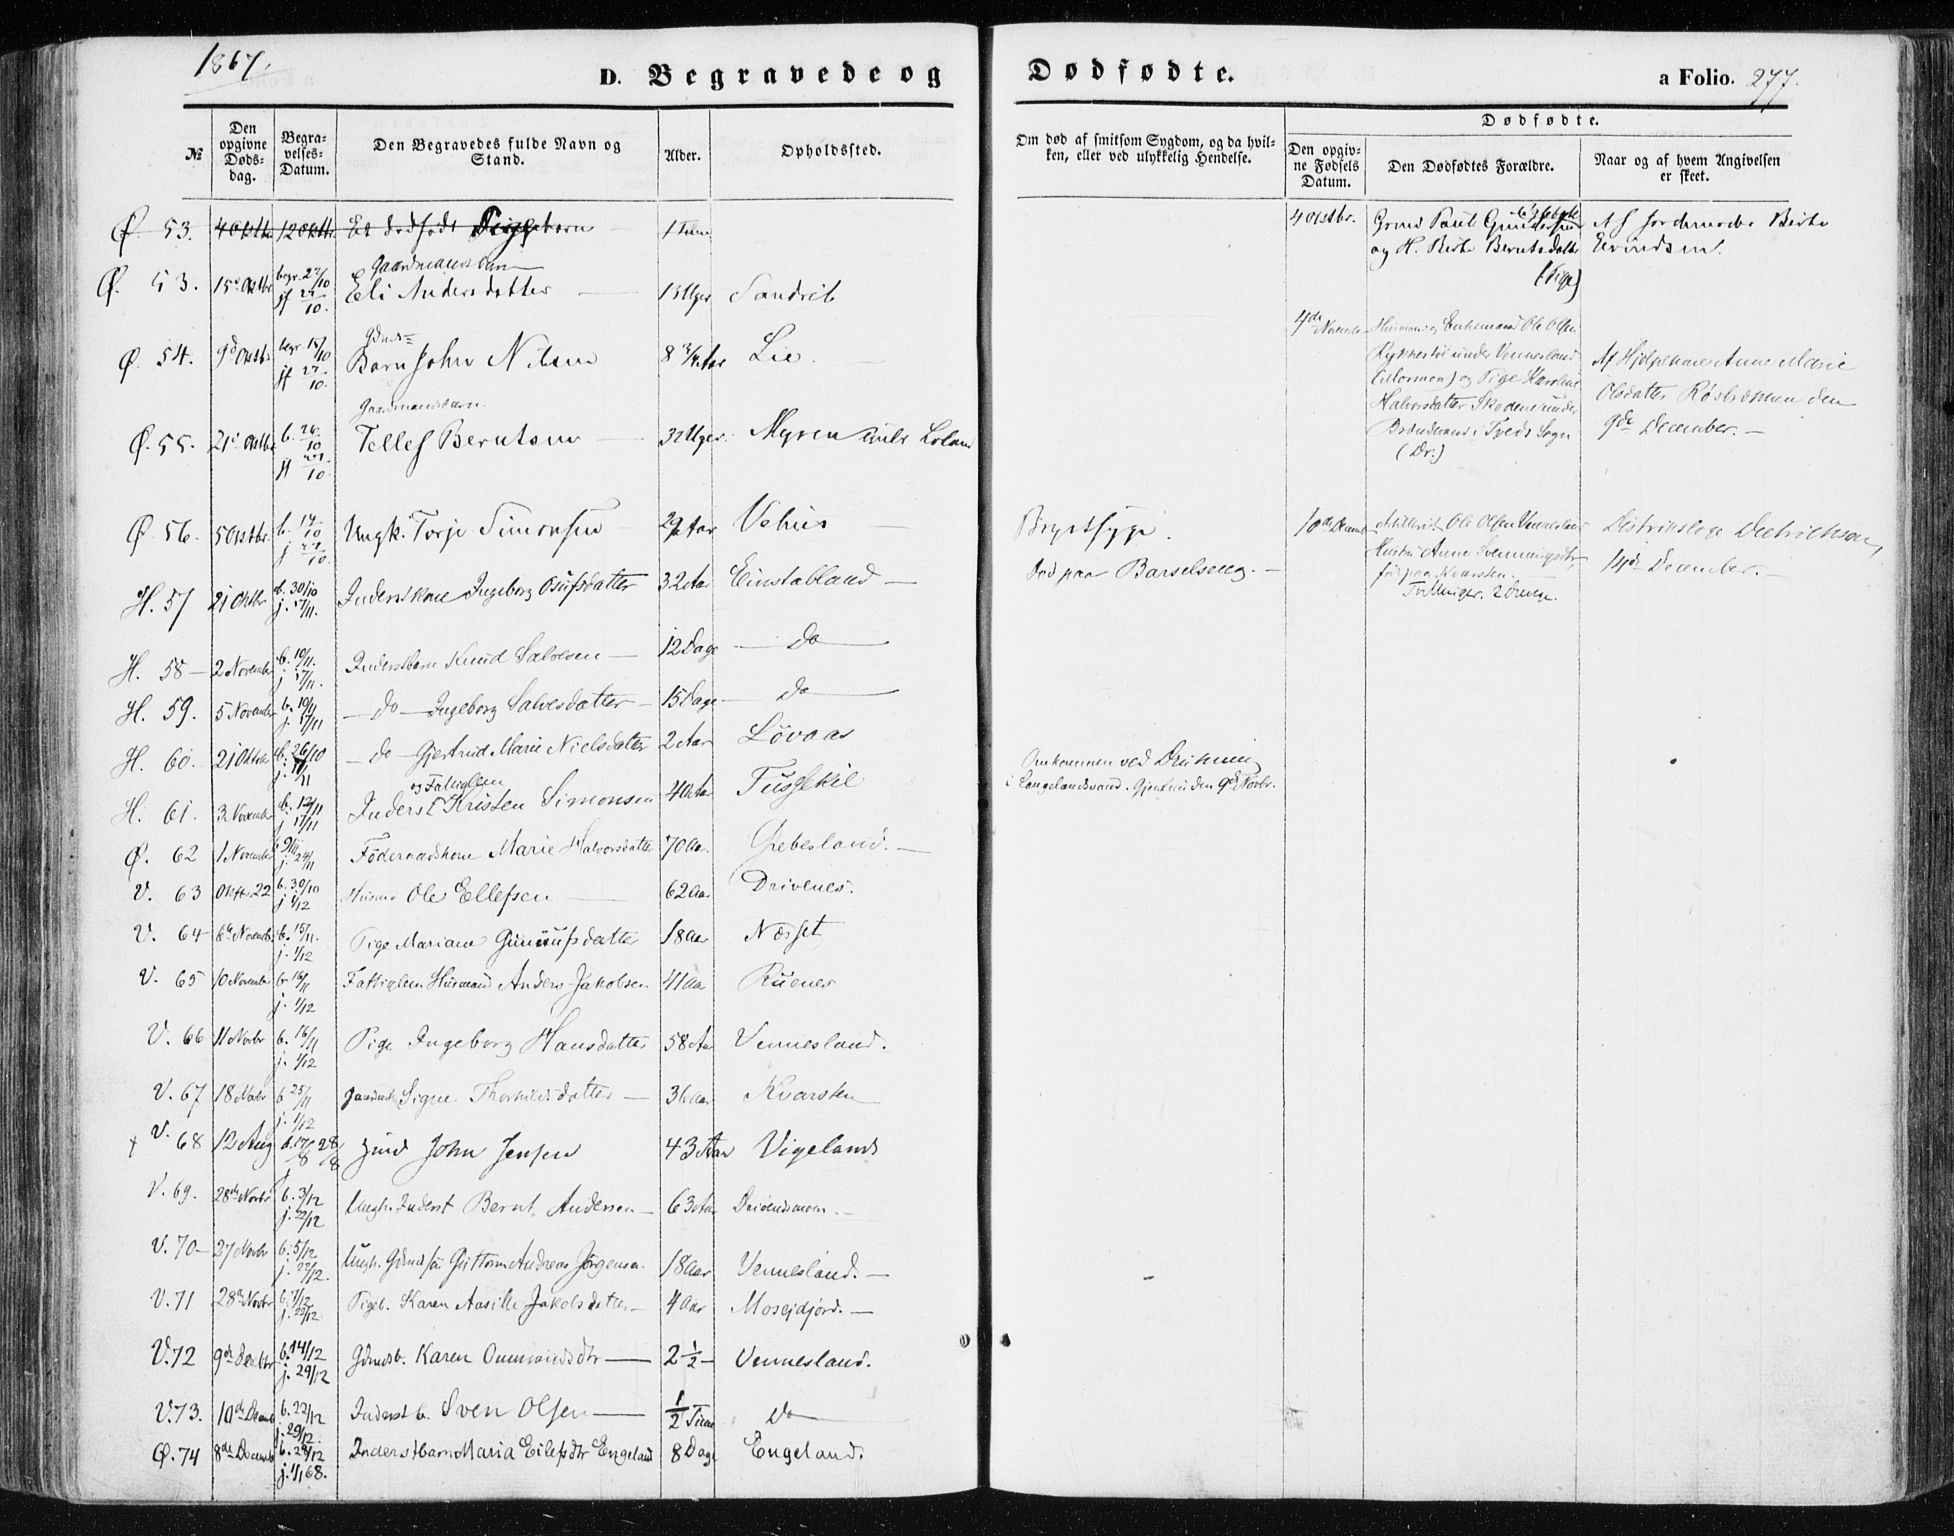 1867.
D. Begravede og Dødfødte.
a Folio. 277.
№
Den opgivne Døds-dag.
Begra-velses-Datum.
Den Begravedes fulde Navn og Stand.
Alder.
Opholdssted.
Om død af smitsom Sygdom, og da hvil-ken, eller ved ulykkelig Hendelse.
Dødfødte.
Den opgiv-ne Fødsels Datum.
Den Dødfødtes Forældre.
Naar og af hvem Angivelsen er skeet.
Ø. 53. 4 Oktbr. 12 Oktbr. Et dødfødt Pigebarn 1 Time
4 Octbr. Grmd Poul Gundersen og H. Berte Berntsdatter (Pige)
Af Jordemoder Berte Eivindsen.
Ø. 53. 15de Octbr begr. 27/10 jf 27/10. Gaardmandsbarn Eli Andersdatter 13 Uger Sandrib
Ø. 54. 9d Octbr begr 15/10 jf 27/10. Gdmds Barn John Nilsen 8 3/4 Aar Lie.
4de November Husmand og Enkemand Ole Olsen
under Vennesland
(Mormon) og Pige Karoline
Halvorsdatter Skodene under
i Tveds Sogn
(Dr.)
Af Hjelpekone Anne Marie
Olsdatter den
9de December.
Ø. 55. 21de Octbr b. 26/10 jf 27/10 Gaardmandsbarn. Tellef Berntsen 32 Uger. Myren
Ø. 56. 5 Octbr. b. 14/10 j 27/10. Ungk. Torje Simonsen 29 Aar Vehus
Brystsyge.
10de Decembr Ole Olsen Vennesland
Hustru Anne Svenningsdtr,
fød paa Kvarsten.
Tvillinger. 2 Drenge.
Distriktslæge Diedrichson,
14de December.
H. 57 21 Oktbr b. 30/10 j. 17/11. Inderstkone Ingeborg Osufsdatter 32 Aar Einstabland
Død paa Barselseng.
H. 58 2 November b. 10/11. j 17/11. Inderstbarn Knud Salvesen 12 Dage Do
H. 59. 5 November b. 10/11 j. 17/11 do Ingeborg Salvesdatter 15 Dage Do
H. 60. 21 Oktober b. 26/10 j. 17/11 do Gjertrud Marie Nielsdatter 2 Aar Løvaas
H. 61. 3 November b. 12/11 j 17/11 Inderst og Fatiglem Kristen Simonsen 40 Aar Tusskil
Omkommen ved Drukning
i Langelandsvand. Gjenfunden 9de Novbr.
Ø. 62 1 November 9/11 j. 24/11 Føderaadskone Marie Halvorsdatter 70 Aar Grebesland.
V. 63 Oktbr. 22 b. 30/10 j 1/12 Husmd Ole Ellefsen 62 Aar Drivenes.
V. 64 6te Novembr b. 15/11. j. 1/12 Pige Mariane Gunnufsdatter 18 Aar Næsset
V. 65 10 November b 16/11 j. 1/12 Fattiglem Husmand Anders Jakobsen 41 Aar Ruenes
V. 66 11 Novbr b. 16/11 j. 1/12 Pige Ingeborg Hansdatter 58 Aar Vennesland.
V. 67 18 Novbr b 25/11 j. 1/12 Signe Thorkildsdatter 36 Aar Kvarsten
+ V. 68 12 Aug b. 17/8 28/8 Gmd John Jensen 43 Aar Vigeland
V. 69. 28de Novbr b. 3/12 j. 22/12 Ungk. Inderst Bernt Andersen 63 Aar Drivenesmoen.
V. 70 27 Novbr b. 5/12 j. 22/12. Ungk. Gdmdsøn Guttorm Andreas Jørgensen 18 Aar Vennesland.
V. 71 28de Novbr b. 7/12 j. 22/12. Pigeb. Karen Aasille Jakobsdatter 4 Aar Moseidjord.
V. 72 9de Decbr b. 14/12 j. 29/12 Gdmdsb. Karen Ommundsdtr 2 1/2 Vennesland.
V. 73. 10de Decemb b. 22/12 j. 29/12. Inderstb. Sven Olsen 1/2 Time Do
Ø. 74 8de Decemb b. 28/12 j. 1/1 68. Inderstbarn Maria Eilefsdtr Engeland 8 Dage Engeland.